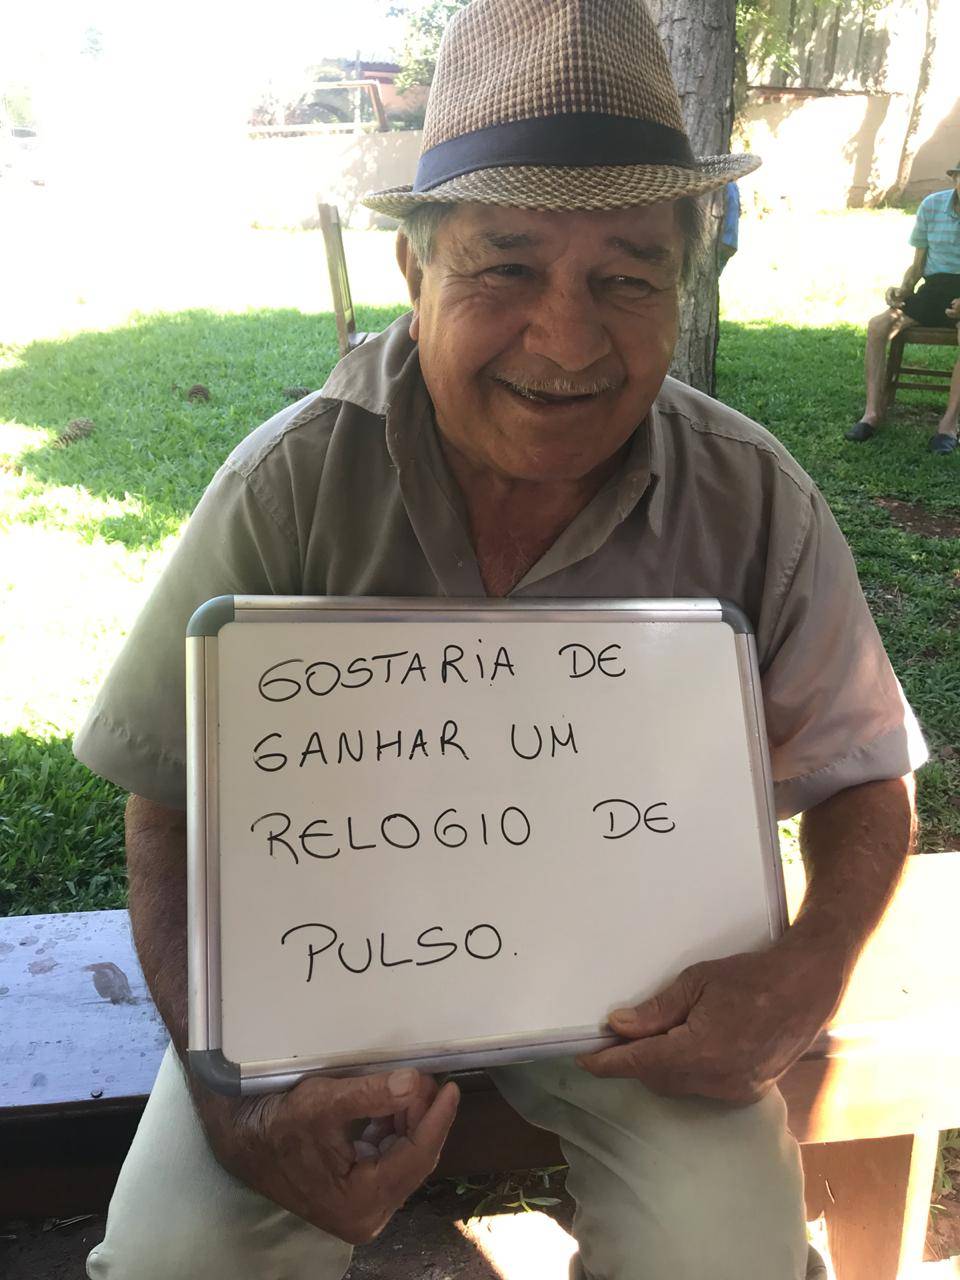 GOSTARiA DE
GANHAR UM
RELOGIO DE
PULSO.